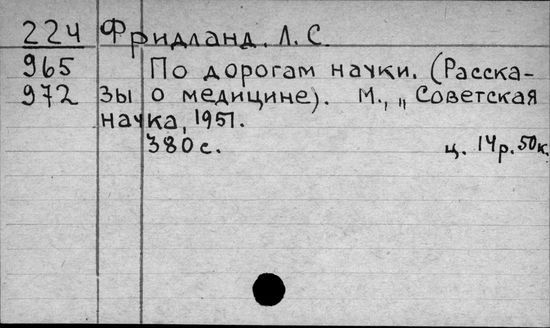 224 Фридланд. Л. С.
965 По дорогам науки. (Расска-
972 зы о медицине). М., „Советская
наука, 1951.
380 с. ц. 14р. 50к.